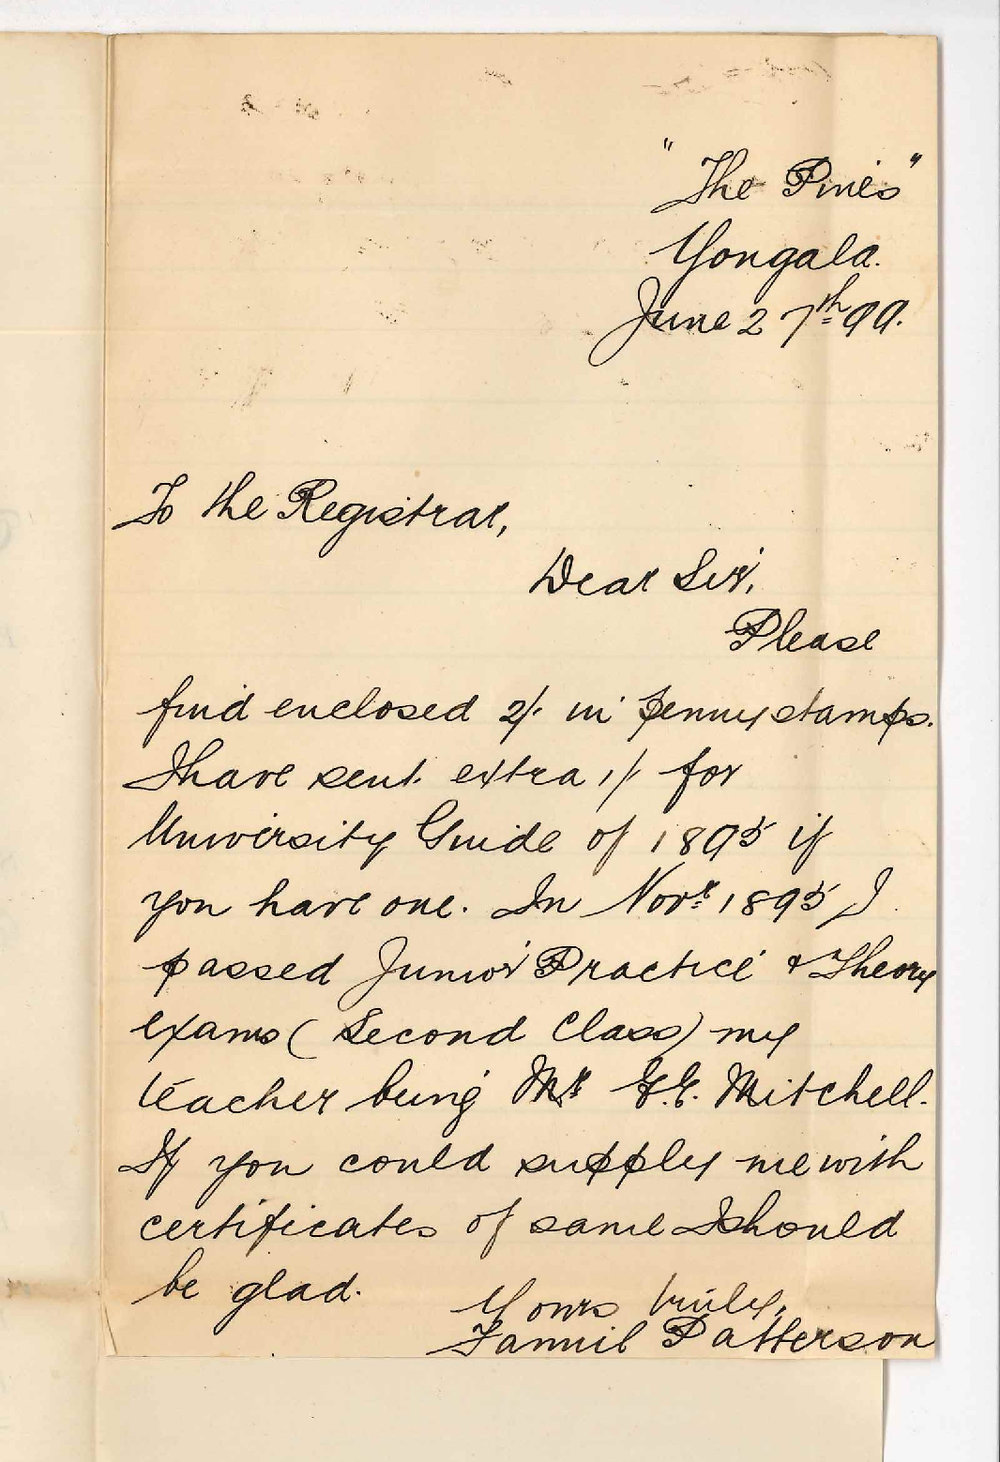 "The Pines"
Yongala.
June 27th 99.
To the Registrar,
Dear Sir,
Please
find enclosed 2/- in penny stamps.
I have sent extra 1/- for
University Guide of 1895 if
you have one. In Novr 1895 I
passed Junior Practice & Theory
exams (Second Class) my
teacher being Mr G. Mitchell.
If you could supply me with
certificates of same I should
be glad.
Yours truly,
Fannie Patterson